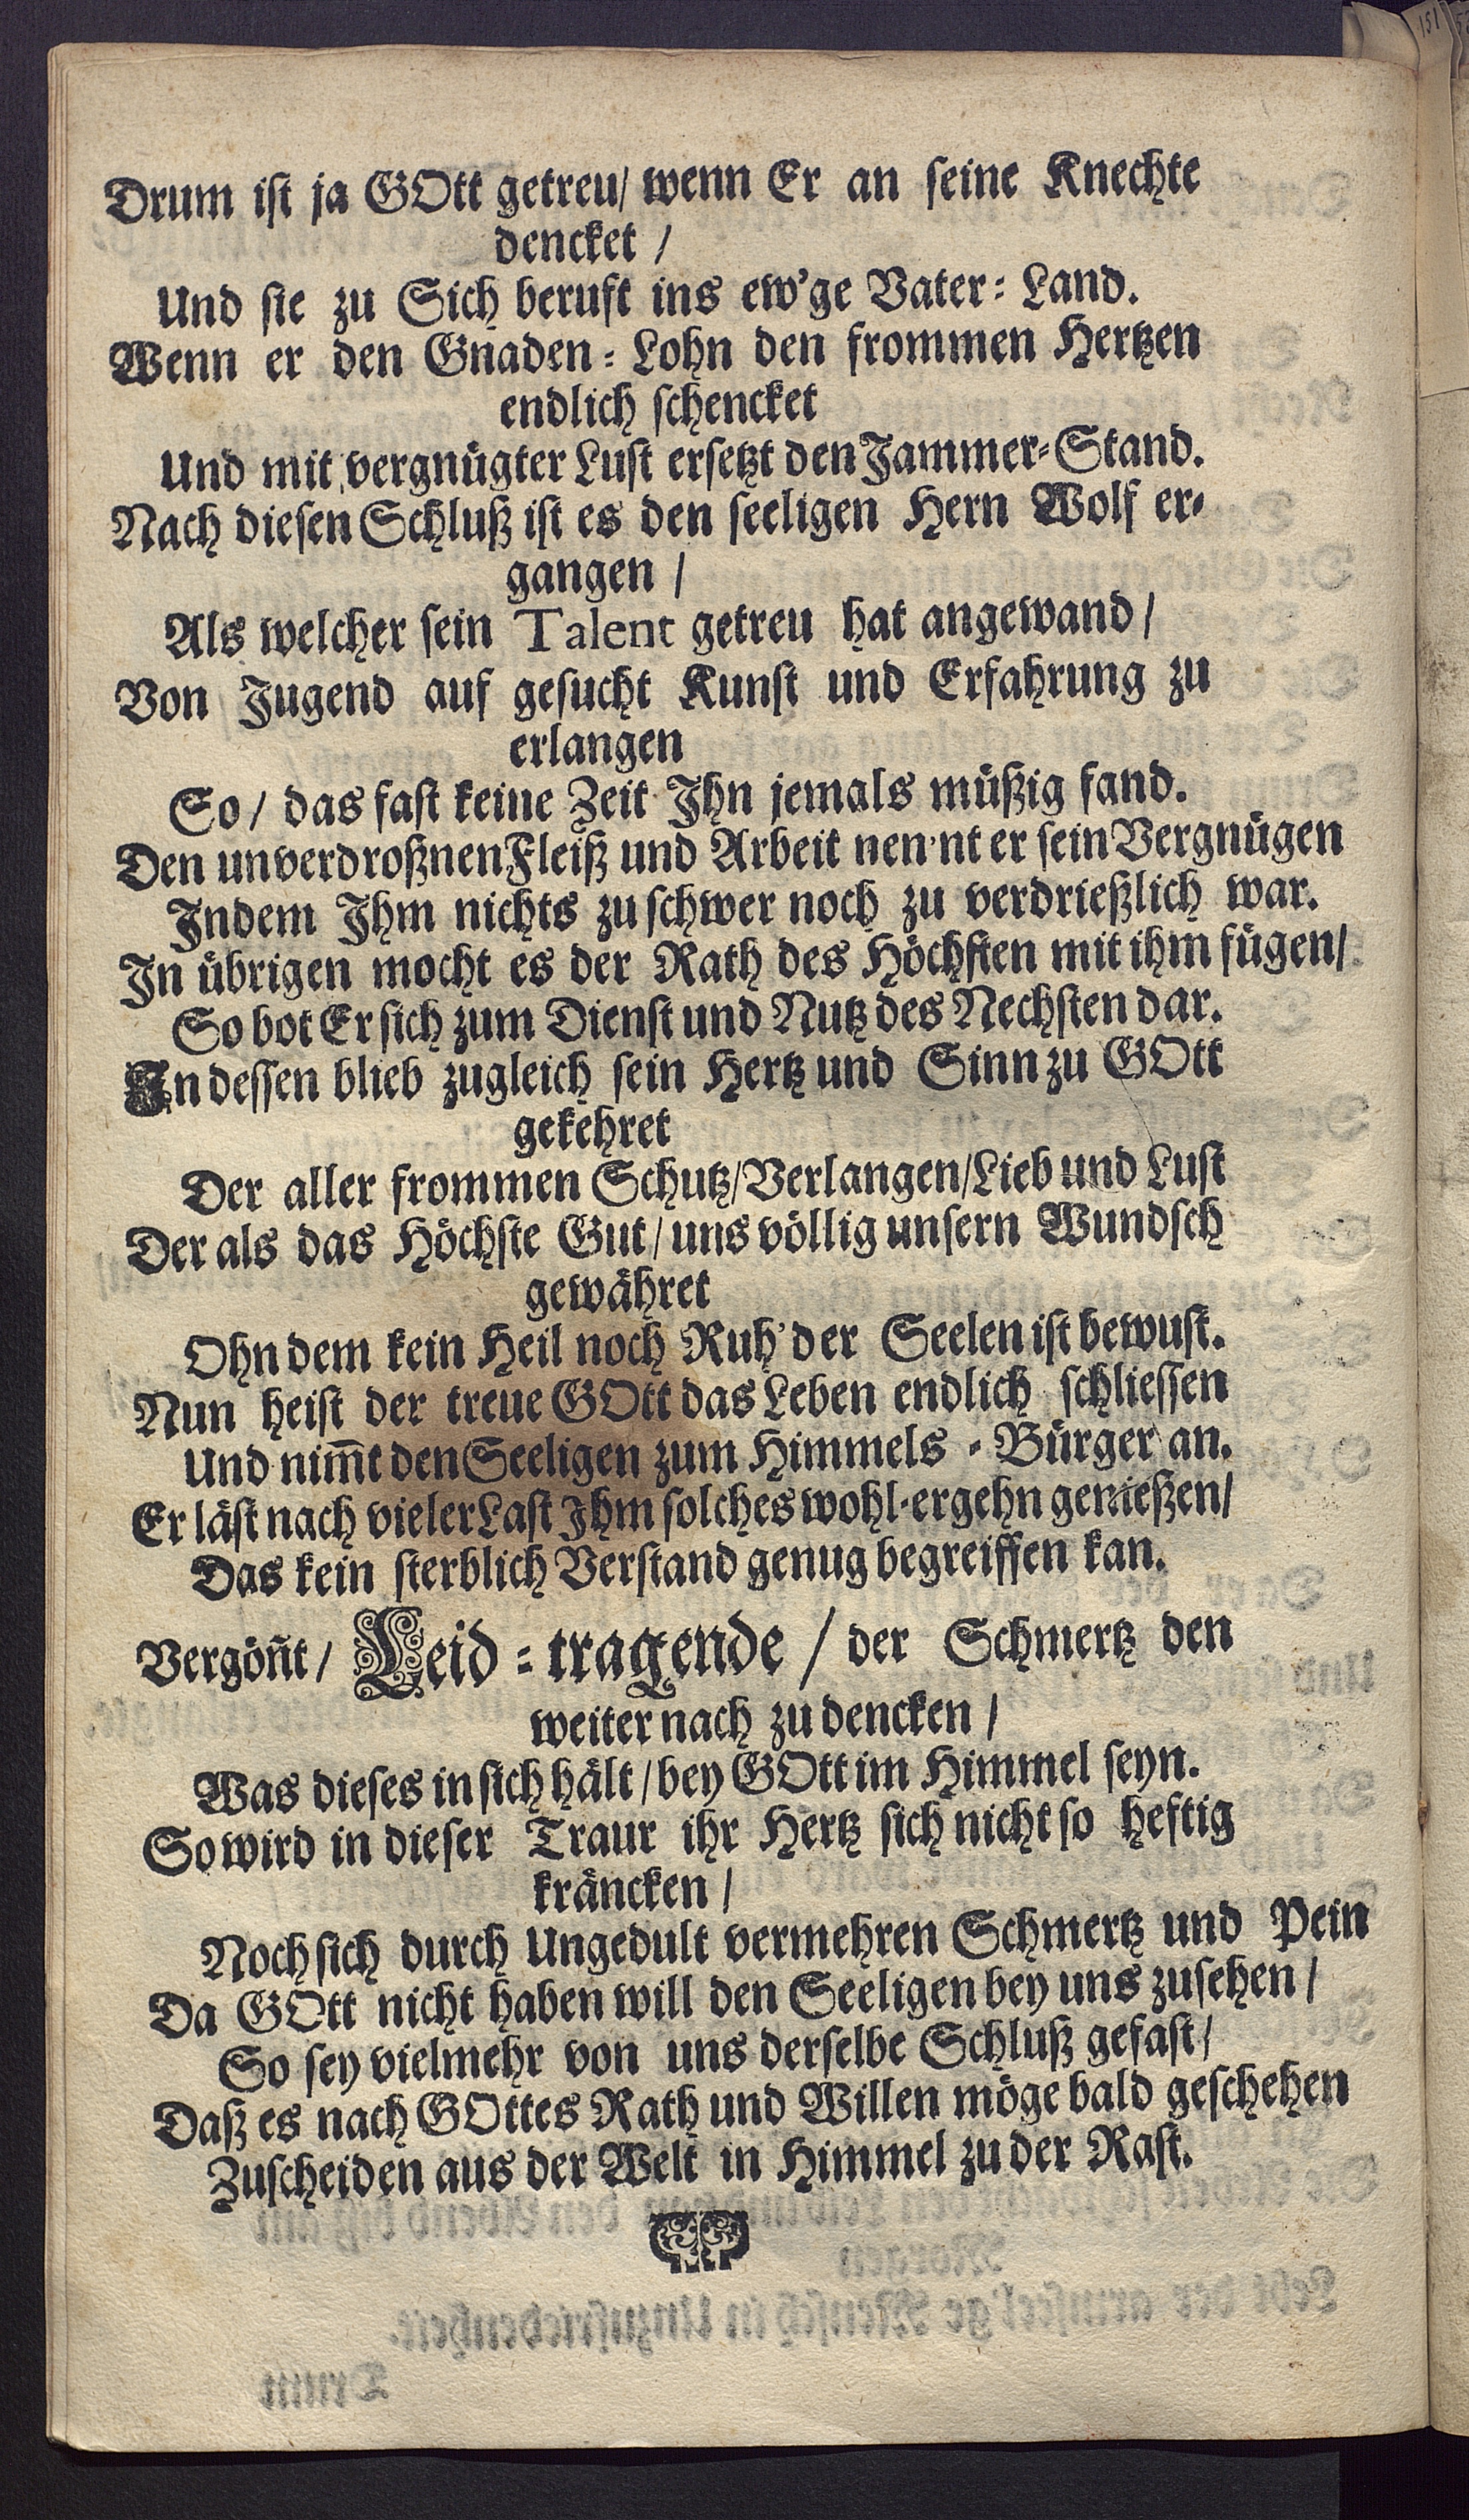 151
Drum ist ja GOtt getreu/ wenn Er an seine Knechte
dencket /
Und sie zu Sich beruft ins ew'ge Vater-Land.
Wenn er den Gnaden-Lohn den frommen Hertzen
endlich schencket
Und mit vergnügter Lust ersetzt den Jammer-Stand.
Nach diesen Schluß ist es den seeligen Hern Wolf er-
gangen /
Als welcher sein Talent getreu hat angewand /
Von Jugend auf gesucht Kunst und Erfahrung zu
erlangen
So / das fast keine Zeit Ihn jemals müßig fand.
Den unverdroßnen Fleiß und Arbeit nen'nt er sein Vergnügen
Indem Ihm nichts zu schwer noch zu verdrießlich war.
In übrigen mocht es der Rath des Höchsten mit ihm fügen/
So bot Er sich zum Dienst und Nutz des Nechsten dar.
In dessen blieb zugleich sein Hertz und Sinn zu GOtt
gekehret
Der aller frommen Schutz/Verlangen/Lieb und Lust
Der als das Höchste Gut / uns völlig unsern Wundsch
gewähret
Ohn dem kein Heil noch Ruh' der Seelen ist bewust.
Nun heist der treue GOtt das Leben endlich schliessen
Und nim̅t den Seeligen zum Himmels-Bürger an.
Er läst nach vieler Last Ihm solches wohl-ergehn genießen/
Das kein sterblich Verstand genug begreiffen kan.
Vergön̅t / Leid-tragende / der Schmertz den
weiter nach zu dencken /
Was dieses in sich hält / bey GOtt im Himmel seyn.
So wird in dieser Traur ihr Hertz sich nicht so heftig
kräncken /
Noch sich durch Ungedult vermehren Schmertz und Pein
Da GOtt nicht haben will den Seeligen bey uns zusehen /
So sey vielmehr von uns derselbe Schluß gefast /
Daß es nach GOttes Rath und Willen möge bald geschehen
Zuscheiden aus der Welt in Himmel zu der Rast.